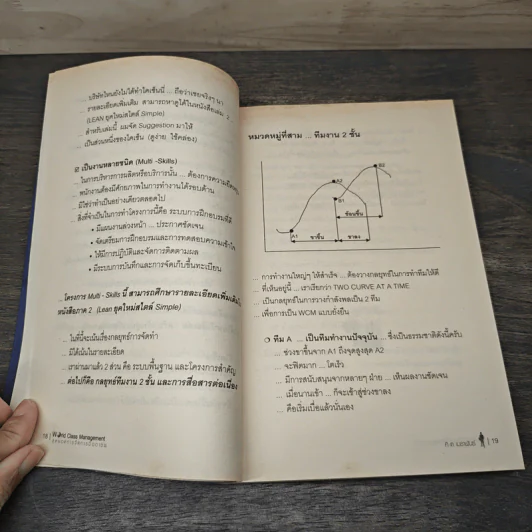 ... บริษัทไหนยังไม่ได้ทำไคเซ็นนี่ ... ถือว่าเชยจริงๆ นา
... รายละเอียดเพิ่มเติม สามารถหาดูได้ในหนังสือเล่ม 2
(LEAN ยุคใหม่สไตล์ Simple)
... สำหรับเล่มนี้ ผมจัด Suggestion มาให้
... เป็นส่วนหนึ่งของไคเซ็น (ดูง่าย ใช้คล่อง)
เป็นงานหลายชนิด (Multi -Skills)
... ในการบริหารการผลิตหรือบริการนั้น ... ต้องการความยืดหยุ่น
... พนักงานต้องมีศักยภาพในการทำงานได้รอบด้าน
... มิใช่ว่าทำเป็นอย่างเดียวตลอดไป
... สิ่งที่จำเป็นในการทำโครงการนี้คือ ระบบการฝึกอบรมที่ดี
• มีแผนงานล่วงหน้า ... ประกาศชัดเจน
• จัดเตรียมการฝึกอบรมและการทดสอบความเข้าใจ
• ให้มีการปฏิบัติและจัดการติดตามผล
• มีระบบการบันทึกและการจัดเก็บขึ้นทะเบียน
...โครงการ Multi - Skills นี้ สามารถศึกษารายละเอียดเพิ่มเติมใน
หนังสือภาค 2 (Lean ยุคใหม่สไตล์ Simple)
... ในที่นี้จะเน้นเรื่องกลยุทธ์การจัดทำ
... มิได้เน้นในรายละเอียด
... เราผ่านมาแล้ว 2 ส่วน คือ ระบบพื้นฐาน และโครงการสำคัญ
... ต่อไปก็คือ กลยุทธ์ทีมงาน 2 ขั้น และการสื่อสารต่อเนื่อง
18 | World Class Management
หมวดหมู่ที่สาม ... ทีมงาน 2 ขั้น
A2
B2
B1
A1
ขาขึ้น
ขาลง
ซ้อนขึ้น
... การทำงานใหญ่ๆ ให้สำเร็จ ... ต้องวางกลยุทธ์ในการทำทีมให้ดี
... ที่เห็นอยู่นี้ ... เราเรียกว่า TWO CURVE AT A TIME
... เป็นกลยุทธ์ในการวางกำลังพลเป็น 2 ทีม
... เพื่อการเป็น WCM แบบยั่งยืน
❍ ทีม A ... เป็นทีมทำงานปัจจุบัน ... ซึ่งเป็นธรรมชาติดังนี้ครับ
... ช่วงขาขึ้นจาก A1 ถึงจุดสูงสุด A2
... จะฟิตมาก ... โตเร็ว
... มีการสนับสนุนจากหลายๆ ฝ่าย ... เห็นผลงานชัดเจน
... เมื่อนานเข้า ... ก็จะเข้าสู่ช่วงขาลง
... คือเริ่มเบื่อแล้วนั่นเอง
| 19